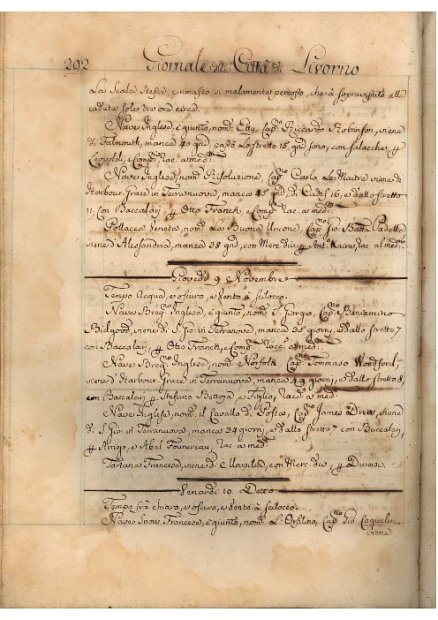 292 Giornale della Città di Livorno
La Scala stessa, e rimasto sì malamente percosso, che à sopravissuto alla
caduta sole tre ore circa.
Nave Inglese, è giunto, nom.ª Edy, Cap.no Riccardo Robinson, viene
di Falmouth, manca 40 gni, passò lo stretto 18 gni sono, con Salacche, p
Leopol, e Comp.ⁱ rac. a med.mi
Nave Inglese, nom.ª Risoluzione, Cap.no Carlo Le Maitre viene di
Harbour Grace in Terranuova, manca 45 gni, di 16, e dallo stretto
11 con Baccalay, p Otto Franck, e Comp.ⁱ rac. a med.mi
Pollacca Veneta, nom.ª La Buona Unione, Cap.no Gio Batta Padella
viene d'Alessandria, manca 38 gni, con Merc. div. p Ant. rac. al med.mo
Giovedì 9 Novembre
Tempo acqua, e oscuro, e vento à scilocco.
Nave Brig.no Inglese, è giunto, nom.ª S. Giorgio, Cap.no Beniamino
Bidgood, viene di S. Gio: in Terranuova, manca 35 giorni, e dallo stretto 7
con Baccalay, p Otto Franck, e Comp.ⁱ racc. a med.mi
Nave Brig.no Inglese, nom.ª Norfolk Cap.no Tommaso Woodford,
viene d'Harbour Grace in Terranuova, manca 29 giorni, e dallo stretto 8,
con Baccalay, p Stefano Bottoja e Figlio, racc. a med.mi
Nave Inglese, nom.ª il Cavallo di Posta, Cap.no James Drew, viene
di S. Gio: in Terranuova, manca 34 giorni, e dallo stretto 7 con Baccalay,
p Arrigo, e Abel Fonnereau, rac. a med.mi
Tartana Francese, viene di con Merc. div. p Diversi.
Venerdì 10. Detto
Tempo frà chiaro, e oscuro, e vento à scilocco.
Nave Snow Francese, è giunto, nom.ª L'Orfilino, Cap.no Gio Coquelin
viene